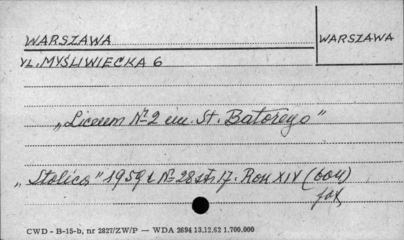 WARSZAWA
WARSZAWA
UL. MYŚLIWIECKA 6
„Liceum № 2 im. St. Batorego"
„Stolica" 1959 r № 28 str 17. Rok XIV (604)
fot
CWD - B-15-b, nr 2827/ZW/P — WDA 2694 13.12.62 1.700.000